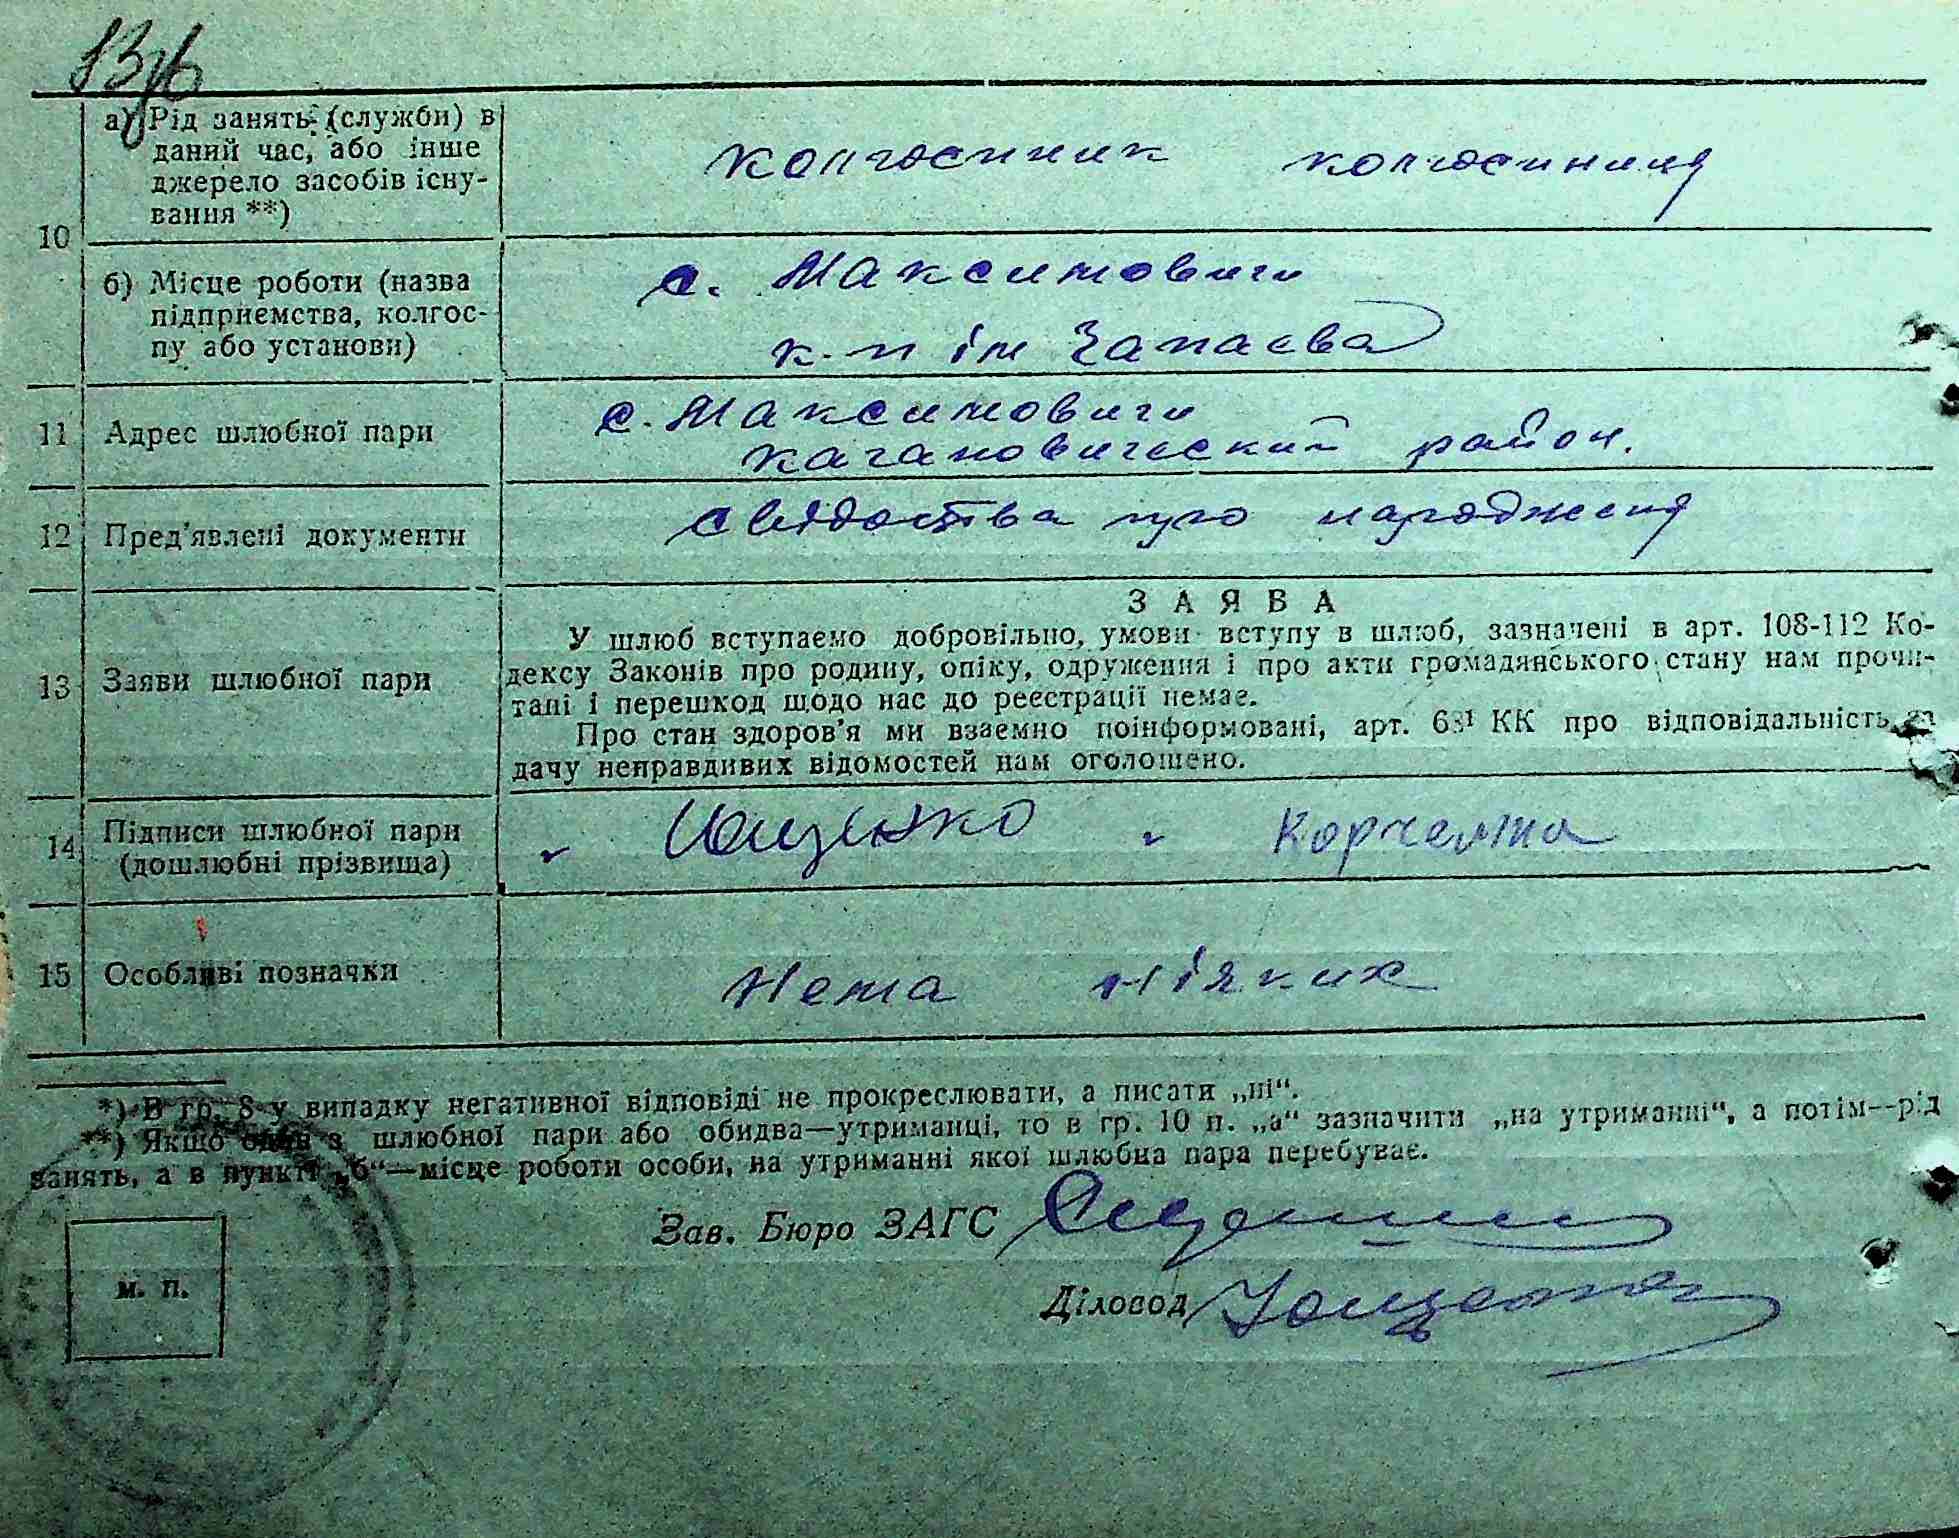 13зв
а) Рід занять (служби) в
даний час, або інше
джерело засобів існу-
вання **)
колгоспник колгоспниця
10
б) Місце роботи (назва
підприємства, колгос-
пу або установи)
с. Максимовичи
к-п ім Чапаєва
11 Адрес шлюбної пари
с. Максимовичи
кагановический район.
12 Пред'явлені документи
свідоства про народженя
13 Заяви шлюбної пари
ЗАЯВА
У шлюб вступаємо добровільно, умови вступу в шлюб, зазначені в арт. 108-112 Ко-
дексу Законів про родину, опіку, одруження і про акти громадянського стану нам прочи-
тані і перешкод щодо нас до реєстрації немає.
Про стан здоров'я ми взаємно поінформовані, арт. 68¹ КК про відповідальність за
дачу неправдивих відомостей нам оголошено.
14 Підписи шлюбної пари
(дошлюбні прізвища)
Ющенко Корчемна
15 Особливі позначки
Нема ніяких
*) В гр. 8 у випадку негативної відповіді не прокреслювати, а писати „ні“.
**) Якщо один з шлюбної пари або обидва—утриманці, то в гр. 10 п. „а“ зазначити „на утриманні“, а потім—рід
занять, а в пункті „б“—місце роботи особи, на утриманні якої шлюбна пара перебуває.
Зав. Бюро ЗАГС
Діловод Ющенко
м. п.